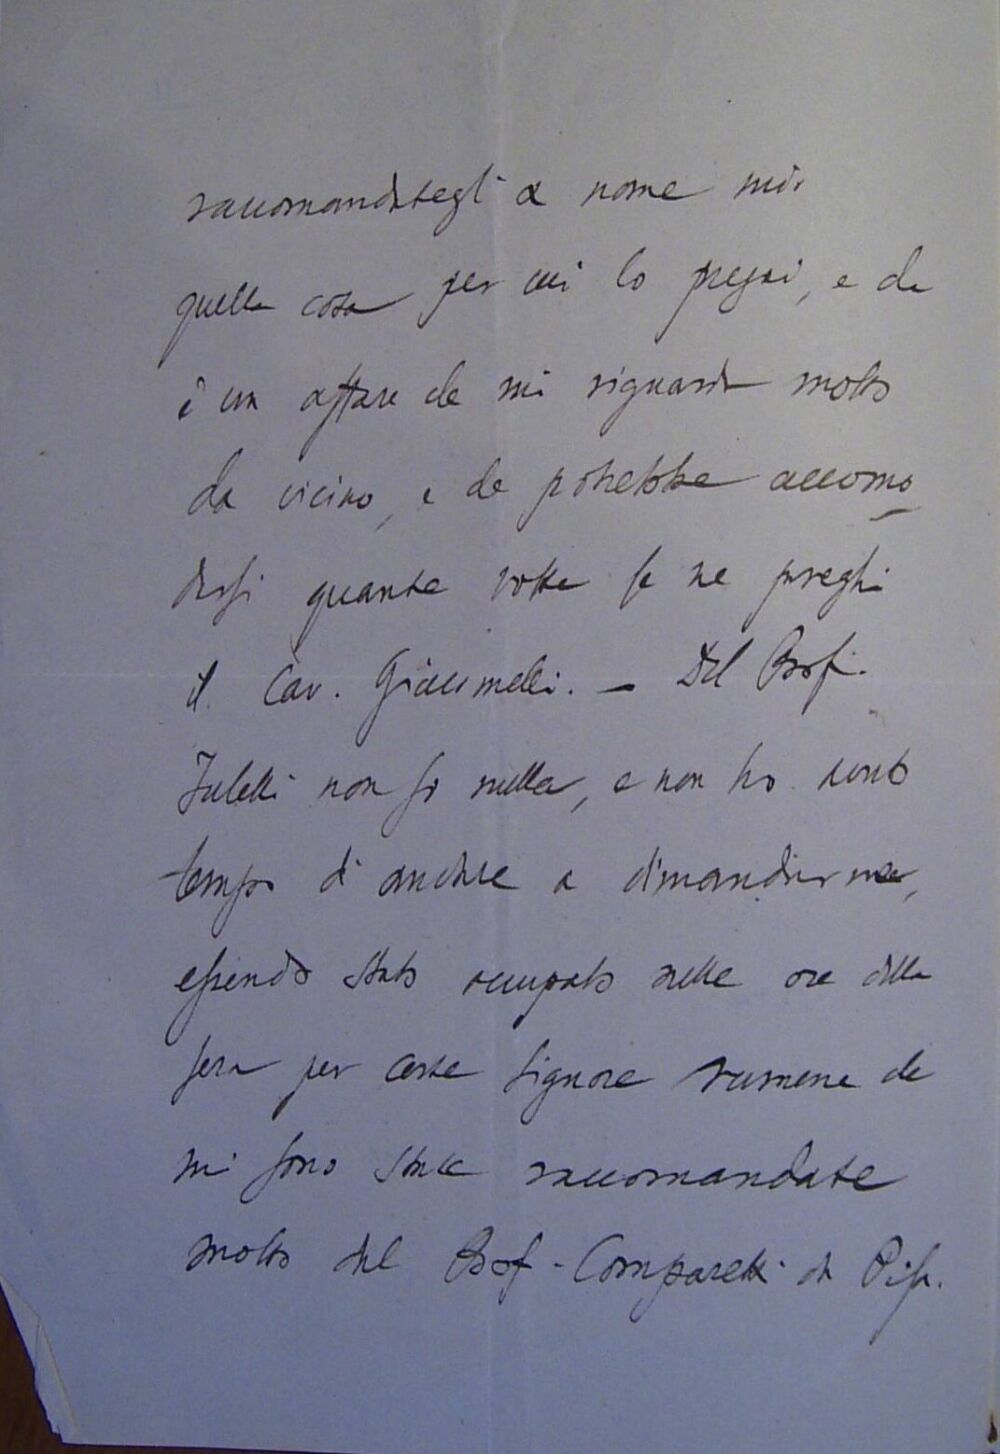 raccomandategli a nome mio
quella cosa per cui lo pregai, e che
è un affare che mi riguarda molto
da vicino, e che potrebbe accomo
darsi quante volte se ne preghi
il Cav. Giacomelli. — Del Prof.
non so nulla, e non ho avuto
tempo di andare a dimandarne,
essendo stato occupato nelle ore della
sera per certe signore rumene che
mi sono state raccomandate
molto dal Prof. Comparetti di Pisa.